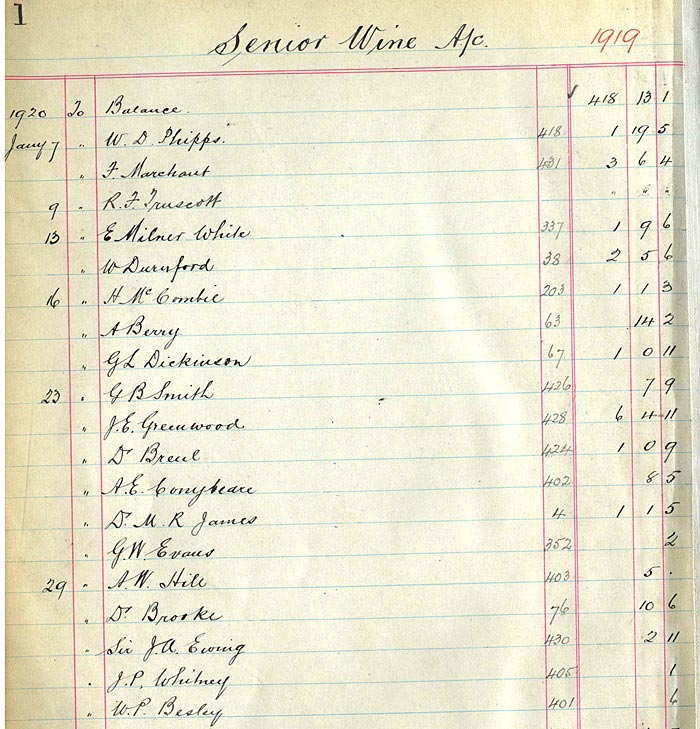 1
Senior Wine A/c. 1919
1920 To Balance. ✓ 418 13 1
Jany 7 " W. D. Phipps. 418 1 19 5
" F. Marchant 431 3 6 4
9 " R. F. Truscott " " "
13 " E Milner White 337 1 9 6
" W Durnford 38 2 5 6
16 " H McCombie 203 1 1 3
" A Berry 63 14 2
" G L Dickinson 67 1 0 11
23 " G B Smith 426 7 9
" J. E. Greenwood 428 6 4 11
" Dr Breul 424 1 0 9
" A. E. Conybeare 402 8 5
" Dr. M. R James 4 1 1 5
" G. W. Evans 352 2
29 " A. W. Hill 403 5 .
" Dr Brooke 76 10 6
" Sir J. A. Ewing 430 2 11
" J. P. Whitney 405 1
" W. P. Besley 401 6